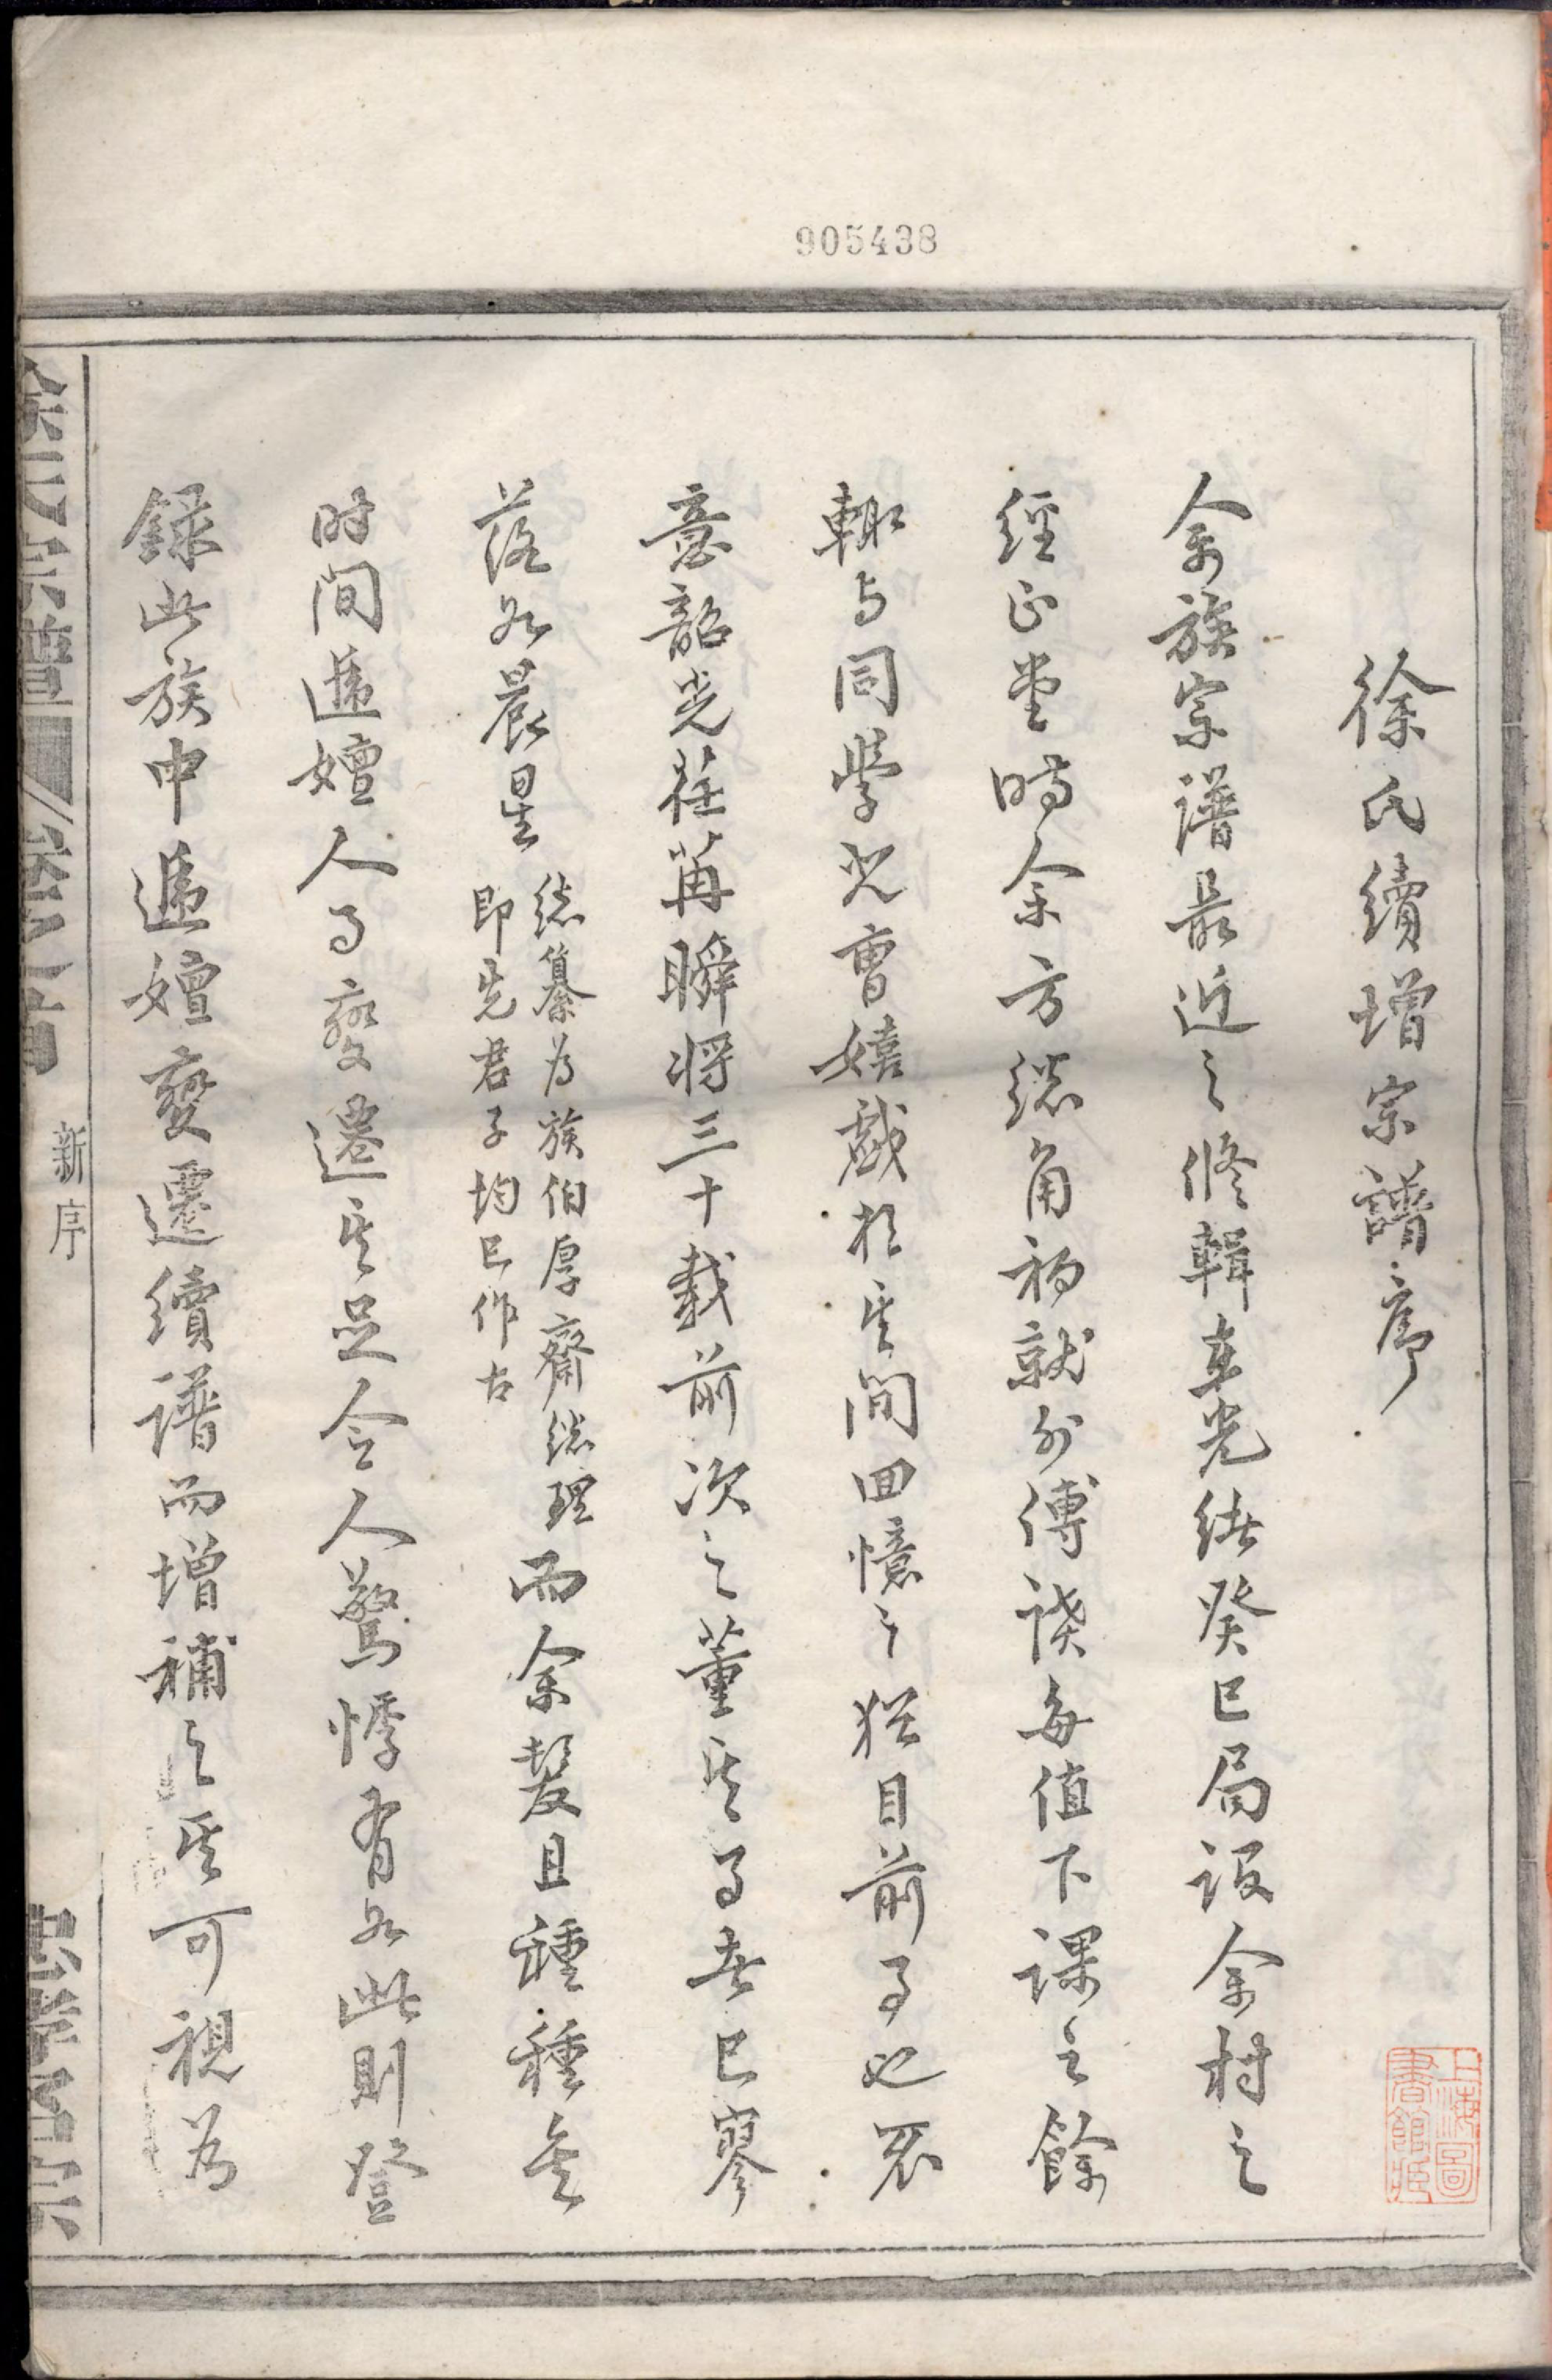 905438
徐氏續增宗譜序
余族宗譜最近之修輯在光緒癸巳局設余村之
經正堂時余方總角初就外傅讀每值下課之餘
輒与同學兒曹嬉戲於其間回憶之猶目前事也不
意韶光荏苒瞬將三十載前次之董其事者已寥
落如晨星
總纂為族伯厚齋總理
即先君子均已作古
而余髮且種種矣
时间遞嬗人事變遷其足令人驚悸有如此則登
録此族中遞嬗變遷續譜而增補之其可視為
徐氏宗譜
卷之首
新序
上海圖書館藏